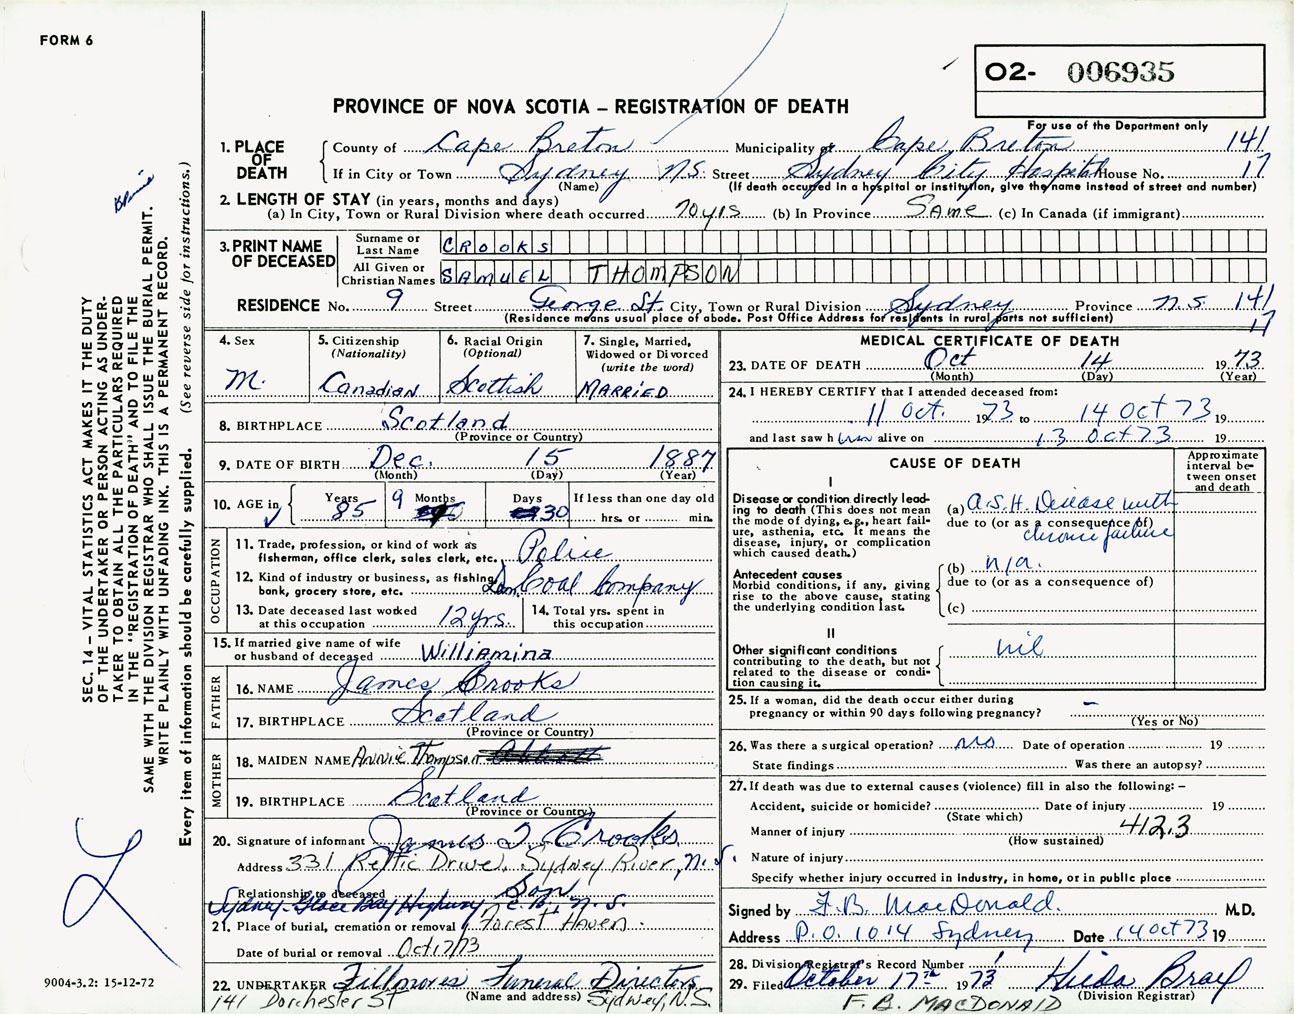 FORM 6
O2- 006935
PROVINCE OF NOVA SCOTIA – REGISTRATION OF DEATH
For use of the Department only
1. PLACE OF DEATH
County of Cape Breton Municipality of Cape Breton 141
If in City or Town Sydney N.S. Street Sydney City Hospital House No. 17
(Name) (If death occurred in a hospital or institution, give the name instead of street and number)
2. LENGTH OF STAY (in years, months and days)
(a) In City, Town or Rural Division where death occurred 70 yrs (b) In Province SAME (c) In Canada (if immigrant)
3. PRINT NAME OF DECEASED
Surname or Last Name CROOKS
All Given or Christian Names SAMUEL THOMPSON
RESIDENCE No. 9 Street George St. City, Town or Rural Division Sydney Province N.S. 141
(Residence means usual place of abode. Post Office Address for residents in rural parts not sufficient) 17
4. Sex M.
5. Citizenship (Nationality) Canadian
6. Racial Origin (Optional) Scottish
7. Single, Married, Widowed or Divorced (write the word) MARRIED
8. BIRTHPLACE Scotland
(Province or Country)
9. DATE OF BIRTH Dec. 15 1887
(Month) (Day) (Year)
10. AGE in Years 85 Months 9 Days 30 If less than one day old hrs. or min.
OCCUPATION
11. Trade, profession, or kind of work as fisherman, office clerk, sales clerk, etc. Police
12. Kind of industry or business, as fishing, bank, grocery store, etc. Dom. Coal Company
13. Date deceased last worked at this occupation 12 yrs.
14. Total yrs. spent in this occupation
15. If married give name of wife or husband of deceased Williamina
FATHER
16. NAME James Crooks
17. BIRTHPLACE Scotland
(Province or Country)
MOTHER
18. MAIDEN NAME Annie Thompson
19. BIRTHPLACE Scotland
(Province or Country)
20. Signature of informant James T. Crooks
Address 331 Keltic Drive, Sydney River, N.S.
Relationship to deceased Son
Sydney-Glace Bay Highway C.B. N.S.
21. Place of burial, cremation or removal Forest Haven
Date of burial or removal Oct 17/73
22. UNDERTAKER Fillmores Funeral Directors
(Name and address)
141 Dorchester St Sydney, N.S.
MEDICAL CERTIFICATE OF DEATH
23. DATE OF DEATH Oct 14 1973
(Month) (Day) (Year)
24. I HEREBY CERTIFY that I attended deceased from:
11 Oct. 1973 to 14 Oct 73 19
and last saw him alive on 13 Oct 73 19
CAUSE OF DEATH
Approximate interval between onset and death
I
Disease or condition directly leading to death (This does not mean the mode of dying, e.g., heart failure, asthenia, etc. It means the disease, injury, or complication which caused death.)
(a) A.S.H. Disease with
due to (or as a consequence of)
chronic failure
Antecedent causes
Morbid conditions, if any, giving rise to the above cause, stating the underlying condition last.
(b) n/a.
due to (or as a consequence of)
(c)
II
Other significant conditions contributing to the death, but not related to the disease or condition causing it.
nil
25. If a woman, did the death occur either during pregnancy or within 90 days following pregnancy? –
(Yes or No)
26. Was there a surgical operation? no Date of operation 19
State findings Was there an autopsy?
27. If death was due to external causes (violence) fill in also the following: –
Accident, suicide or homicide? Date of injury 19
(State which)
Manner of injury 412.3
(How sustained)
Nature of injury
Specify whether injury occurred in industry, in home, or in public place
Signed by F.B. MacDonald. M.D.
Address P.O. 1014 Sydney Date 14 Oct 73 19
28. Division Registrar's Record Number
29. Filed October 17th 1973 Hilda Bray
(Division Registrar)
F. B. MACDONALD
SEC. 14 – VITAL STATISTICS ACT MAKES IT THE DUTY
OF THE UNDERTAKER OR PERSON ACTING AS UNDER-
TAKER TO OBTAIN ALL THE PARTICULARS REQUIRED
IN THE "REGISTRATION OF DEATH" AND TO FILE THE
SAME WITH THE DIVISION REGISTRAR WHO SHALL ISSUE THE BURIAL PERMIT.
WRITE PLAINLY WITH UNFADING INK. THIS IS A PERMANENT RECORD.
Every item of information should be carefully supplied. (See reverse side for instructions.)
9004-3.2: 15-12-72